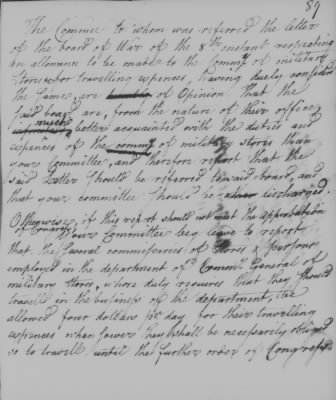 89
The Commee to whom was referred the letter
of the board of War of the 8th instant respecting
an allowance to be made to the Commy of military
Stores & for travelling expences, having duely considered
the same, are of Opinion that the
said board are, from the nature of their office,
much better acquainted with the duties and
expences of the commy of military stores than
your Committee, and therefore report that the
said Letter should be referred to said board, and
that your committee should be discharged
Otherwise, if this report should not meet the approbation
of Congress, your Committee beg leave to report
that the several commissaries of Stores & persons
employed in the department of Commy General of
military Stores, whose duty requires that they should
travel in the business of the department, be
allowed four dollars pr day for their travelling
expences when so ever they shall be necessarily obliged
so to travel until the further order of Congress